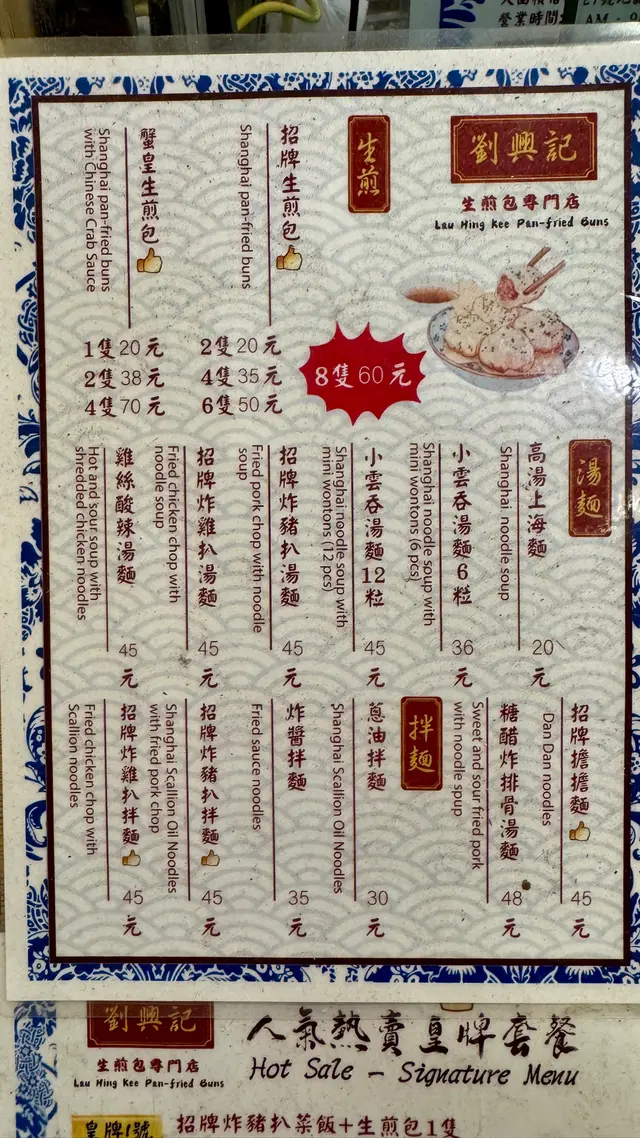 營業時間:
AM
劉興記
生煎包專門店
Lau Hing Kee Pan-fried Buns
生煎
招牌生煎包
Shanghai pan-fried buns
2隻20元
4隻35元
6隻50元
8隻60元
蟹皇生煎包
Shanghai pan-fried buns
with Chinese Crab Sauce
1隻20元
2隻38元
4隻70元
湯麵
高湯上海麵
Shanghai noodle soup
20元
小雲吞湯麵6粒
Shanghai noodle soup with
mini wontons (6 pcs)
36元
小雲吞湯麵12粒
Shanghai noodle soup with
mini wontons (12 pcs)
45元
招牌炸豬扒湯麵
Fried pork chop with noodle
soup
45元
招牌炸雞扒湯麵
Fried chicken chop with
noodle soup
45元
雞絲酸辣湯麵
Hot and sour soup with
shredded chicken noodles
45元
招牌擔擔麵
Dan Dan noodles
45元
糖醋炸排骨湯麵
Sweet and sour fried pork
with noodle spup
48元
拌麵
蔥油拌麵
Shanghai Scallion Oil Noodles
30元
炸醬拌麵
Fried sauce noodles
35元
招牌炸豬扒拌麵
Shanghai Scallion Oil Noodles
with fried pork chop
45元
招牌炸雞扒拌麵
Fried chicken chop with
Scallion noodles
45元
劉興記
生煎包專門店
Lau Hing Kee Pan-fried Buns
人氣熱賣皇牌套餐
Hot Sale – Signature Menu
皇牌1號
招牌炸豬扒菜飯+生煎包1隻